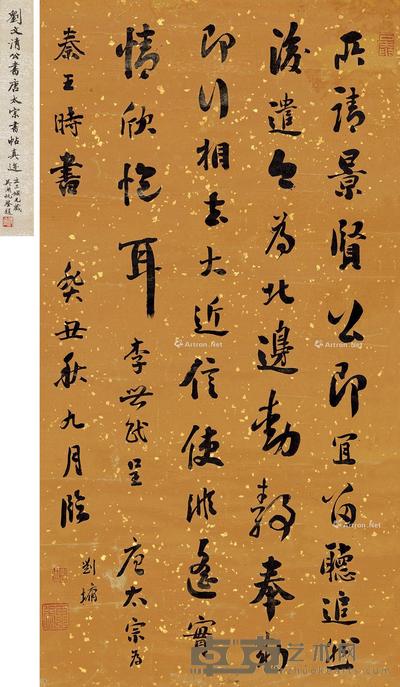 所請景賢公即宜留聽追然
後遣令為北邊動靜奉勅
即行相去大近信使非遙實
情欣悅耳 李世民呈 唐太宗為
秦王時書 癸丑秋九月臨 劉墉
劉文清公書唐太宗書帖真迹
Artron.Net
卓克艺术网